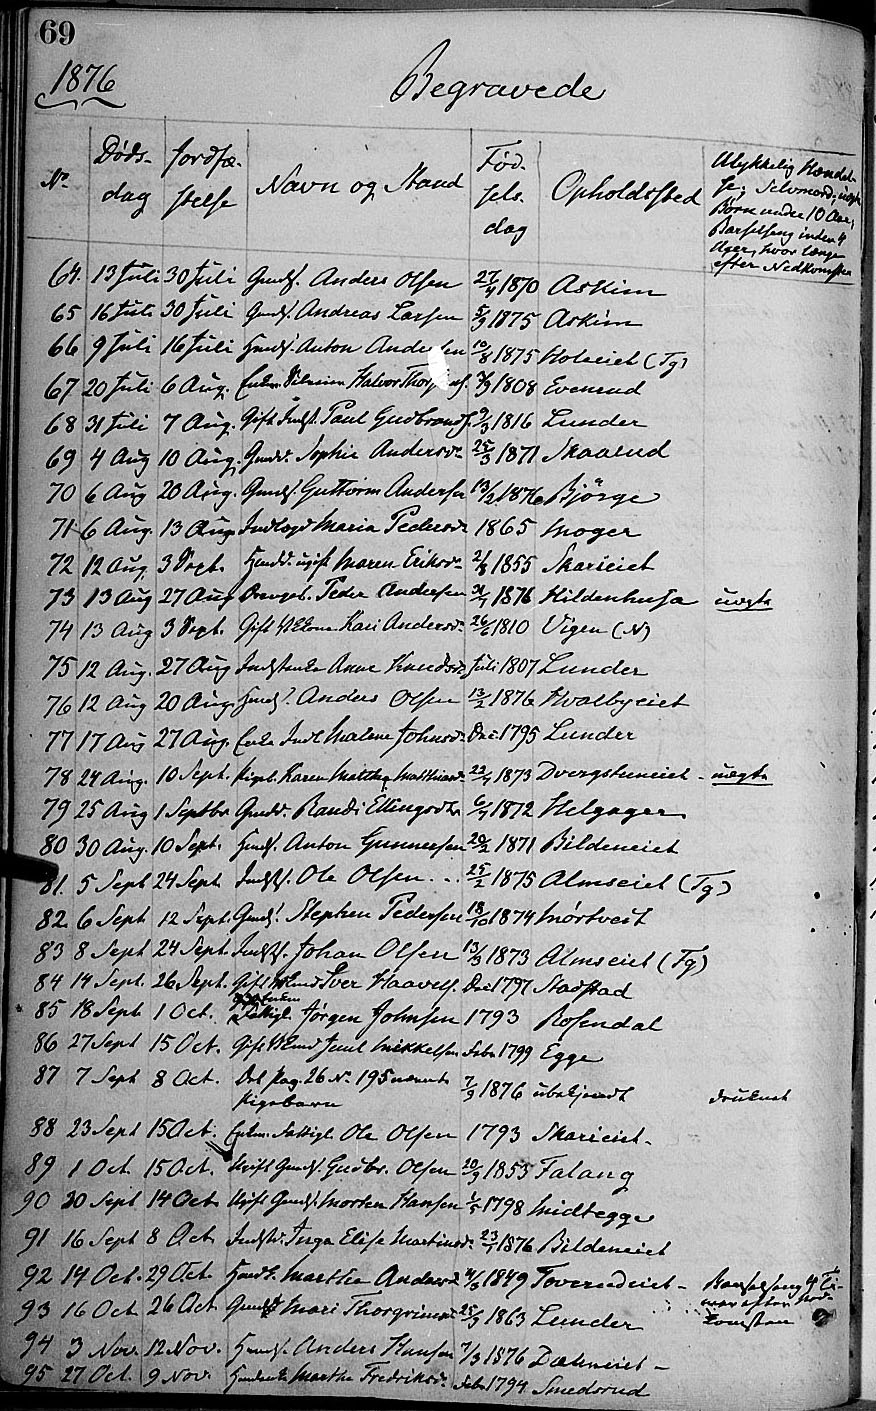 69
1876
Begravede
No Dødsdag Jordfæstelse Navn og Stand Fødselsdag Opholdssted Ulykkelig Hændelse, Selvmord, uægte Børn under 10 Aar, Barselseng inden 4 Uger, hvor længe efter Nedkomsten
64. 13 Juli 30 Juli Gmdsf. Anders Olsen 27/4 1870 Askim
65 16 Juli 30 Juli Gmdsf. Andreas Larsen 5/9 1875 Askim
66 9 Juli 16 Juli Hmdsf. Anton Andersen 10/8 1875 Holeiet (Tg)
67 20 Juli 6 Aug. Halvor 1808 Evenrud
68 31 Juli 7 Aug. Gift Indst. Paul Gudbrands. 9/3 1816 Lunder
69 4 Aug 10 Aug. Gmdd. Sophie Andersdr 25/3 1871 Skaarud
70 6 Aug 20 Aug. Gmdsf. Guttorm Andersen 13/2 1876 Bjørge
71 6 Aug. 13 Aug. Indlagd Maria Pedersdr 1865 Moger
72 12 Aug 3 Sept. Hmdd. ugift Maren Eriksdr 2/8 1855 Skarieiet
73 13 Aug 27 Aug Peder Andersen 1876 Kildenhusa uægte
74 13 Aug 3 Sept. Gift Kari Andersdr 26/6 1810 Vigen (N)
75 12 Aug. 27 Aug Indstenke Anne Knudsdr Juli 1807 Lunder
76 12 Aug 20 Aug. Hmdsf. Anders Olsen 13/2 1876 Hvalbyeiet
77 17 Aug 27 Aug. Enke Indl Malene Johnsdr Dec 1795 Lunder
78 24 Aug. 10 Sept. Pigeb. Karen Mathea 1873 Dvergstuneiet - uægte
79 25 Aug 1 Septbr Gmdd. Randi Ellingsdtr 6/4 1872 Helgager
80 30 Aug. 10 Sept. Hmdsf. Anton Gunnersen 20/2 1871 Bildeneiet
81. 5 Sept 24 Sept Indstsf. Ole Olsen 25/2 1875 Almseiet (Tg)
82. 6 Sept 12 Sept. Gmdsf. Stephen Pedersen 18/10 1874 Mørtvedt
83 8 Sept 24 Sept. Indstsf. Johan Olsen 13/3 1873 Almseiet (Tg)
84 14 Sept. 26 Sept. Gift Iver Haavels. Dec 1797 Stadstad
85 18 Sept 1 Oct. Fattigl. Jørgen Johnsen 1793 Rosendal
86 27 Sept 15 Oct. Gift Mikkelsen Febr 1799 Egge
87 7 Sept 8 Oct. Det Pag. 26 No 195 nævnte
Pigebarn 7/9 1876 ubekjendt druknet
88 23 Sept 15 Oct. Enkem. Fattigl. Ole Olsen 1793 Skarieiet
89 1 Oct 15 Oct. Ugift Gmdsf. Gudbr. Olsen 20/9 1853 Falang
90 30 Sept 14 Oct Ugift Gmdsf. Morten Hansen 1/5 1798 Midtegge
91 16 Sept 8 Oct Indstd. Inga Elise Martinsdr 23/1 1876 Bildeneiet
92 14 Oct. 29 Oct. Hmdk. Marthe Andersdr 1849 Toverudeiet - Barselseng 4 Timer efter Nedkomsten
93 16 Oct 26 Oct Mari Thorgrimsdr 25/9 1863 Lunder
94 3 Nov. 12 Nov. Hmdsf. Anders Hansen 7/3 1876 Dæhneiet -
95 27 Oct. 9 Nov. Hmdenke Marthe Fredriksdr Febr 1794 Smedsrud